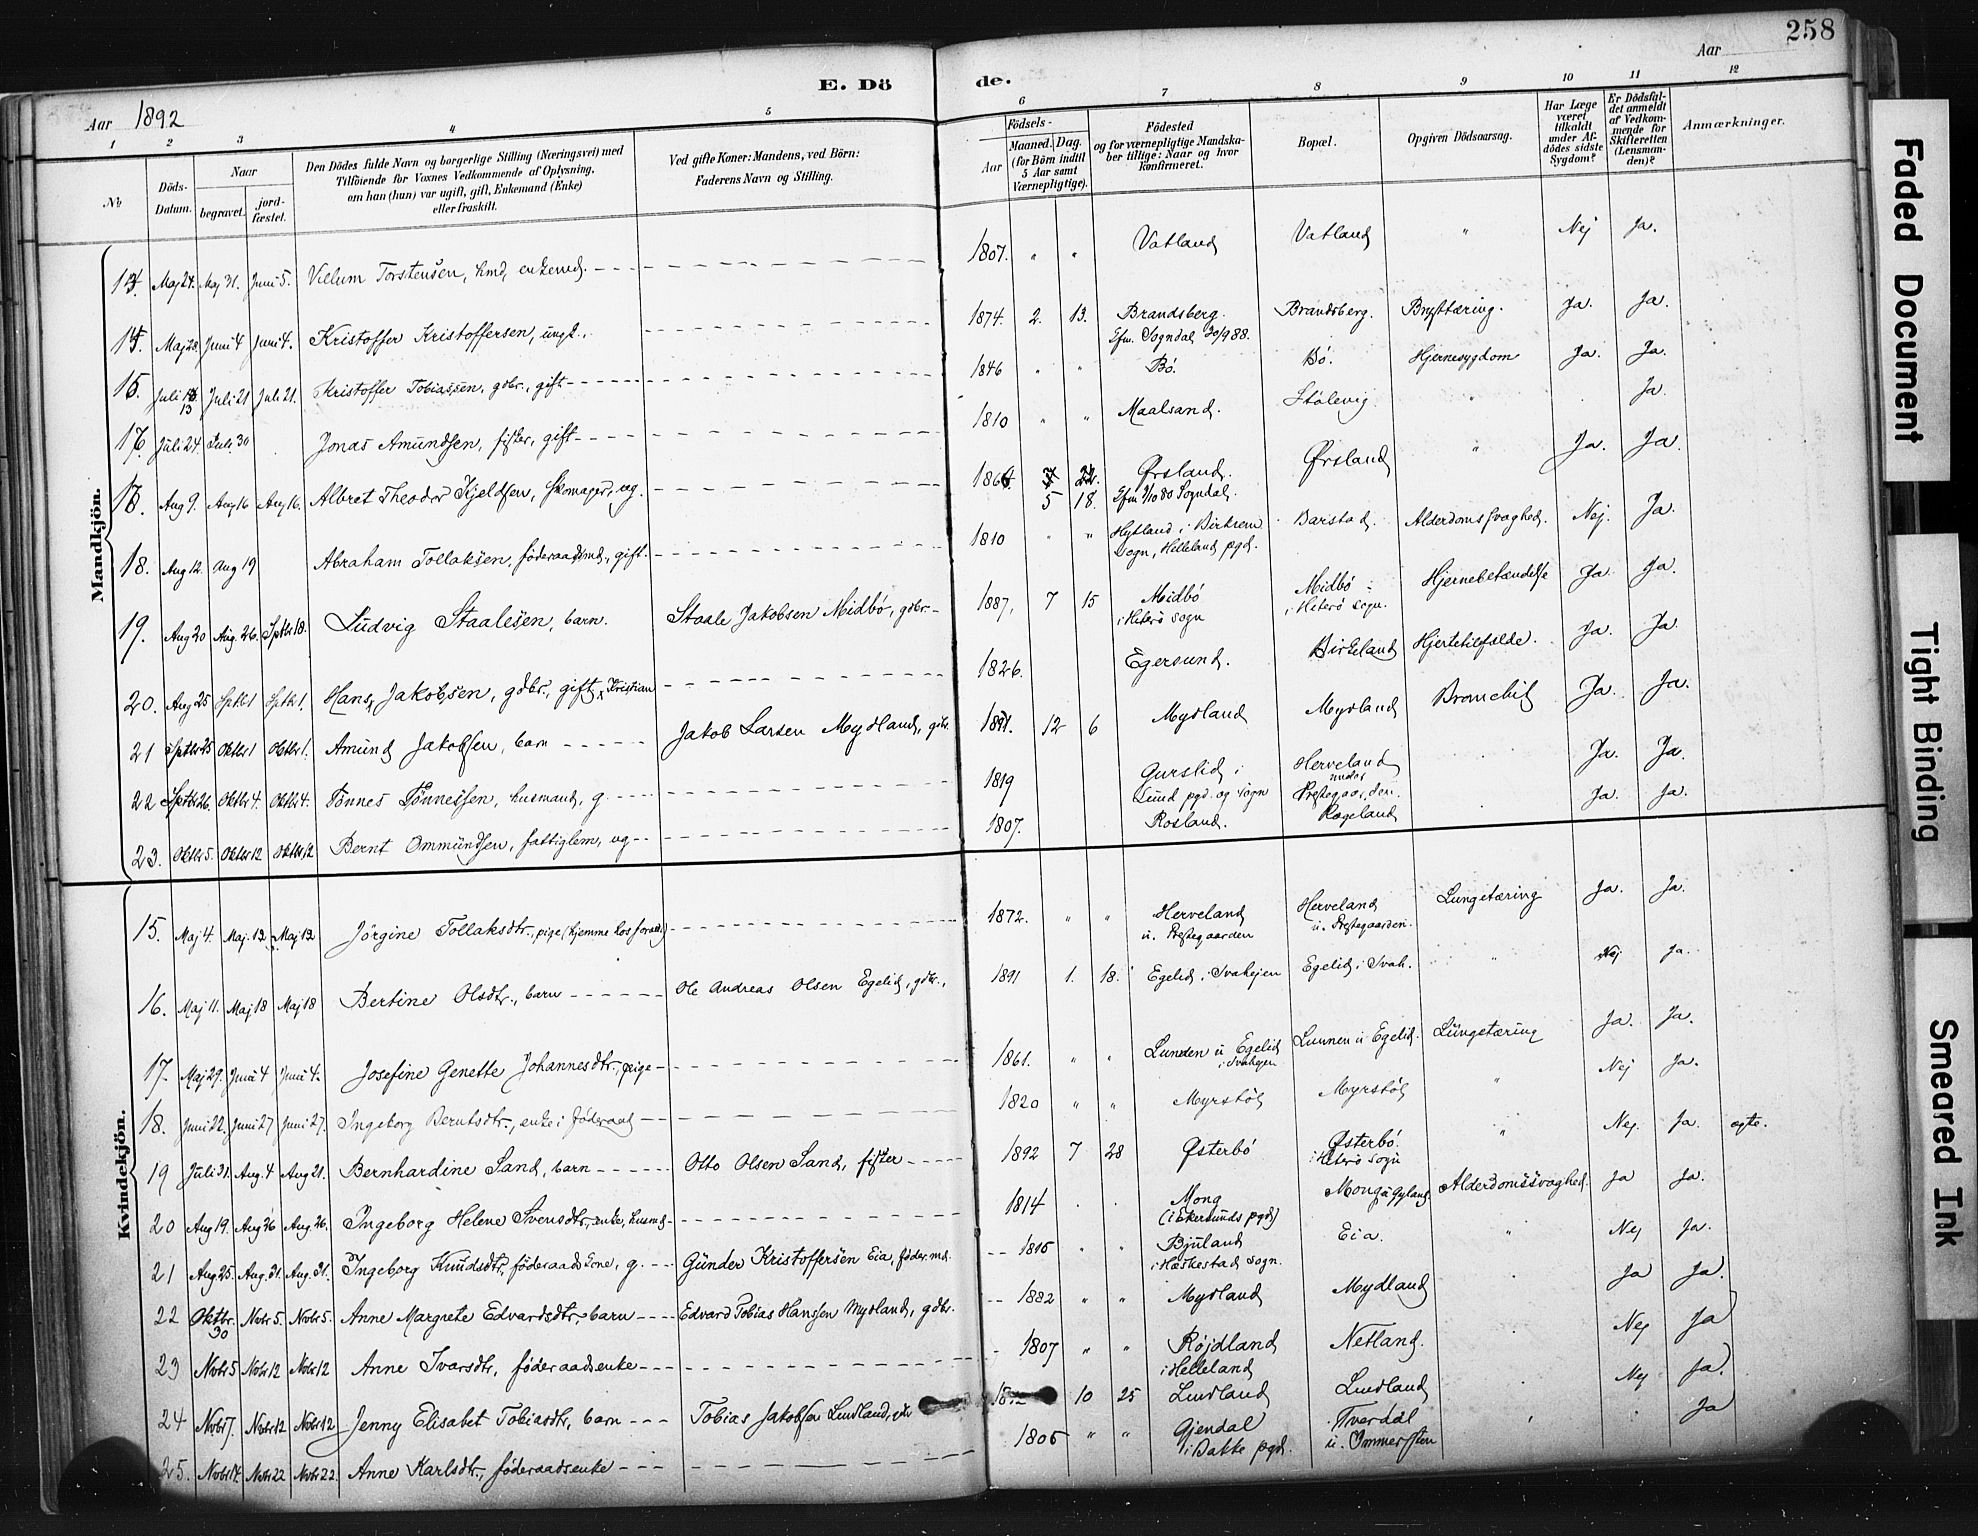 258
E. Dö
de.
Aar 1892
Aar
1 2 3 4 5 6 7 8 9 10 11 12
No
Döds-Datum.
Naar
begravet.
jord-fæstet.
Den Dödes fulde Navn og borgerlige Stilling (Næringsvei) med
Tilföiende for Voxnes Vedkommende af Oplysning,
om han (hun) var ugift, gift, Enkemand (Enke)
eller fraskilt.
Ved gifte Koner: Mandens, ved Börn:
Faderens Navn og Stilling.
Födsels-
Aar
Maaned. Dag.
(for Börn indtil
5 Aar samt
Værnepligtige).
Födested
og for værnepligtige Mandska-
ber tillige: Naar og hvor
konfirmeret.
Bopæl.
Opgiven Dödsaarsag.
Har Læge
været
tilkaldt
under Af-
dödes sidste
Sygdom?
Er Dödsfal-
det anmeldt
af Vedkom-
mende for
Skifteretten
(Lensman-
den)?
Anmærkninger.
Mandkjön.
Maj 24. Maj 31. Juni 5. Villum Torstensen, hmd, enkemd. 1807. " " Vatland Vatland " Nej Ja.
Maj 28. Juni 4 Juni 4. Kristoffer Kristoffersen, ungk., 1874. 2. 13. Brandsberg. Brandsberg. Brysttæring. Ja. Ja.
Sogndal 30/9 88.
Juli 13 Juli 21 Juli 21. Kristoffer Tobiassen, gdbr., gift 1846 " " Bö. Bö. Hjernesygdom Ja. Ja.
Juli 24. Juli 30 Jonas Amundsen, fisker, gift 1810 " " Maalsand. Stölevig. " Ja
Aug 9. Aug 16 Aug 16. Albret Theodor Kjeldsen, skomager, ug. 5 18. Ørsland. Ørsland " Ja. Ja
Sogndal.
18. Aug 12. Aug 19 Abraham Tollaksen, föderaadsmd., gift. 1810 " " Hytland i Birkrem Barstad. Alderdomssvaghed. Nej. Ja.
Sogn, Helleland pgd.
19. Aug 20 Aug. 26. Sptbr 18. Ludvig Staalesen, barn. Staale Jakobsen Midbö, gdbr. 1887, 7 15 Midbö Midbö Hjernebetændelse Ja. Ja.
i Heterö sogn i Heterö sogn.
20. Aug 25 Sptb 1 Sptb 1. Hans x Jakobsen, gdbr., gift x Kristian 1826. Egersund. Birkeland Hjertetilfælde. Ja. Ja.
21 Sptbr 25 Oktbr 1 Oktbr 1. Amund Jakobsen, barn Jakob Larsen Mydland, gdbr. 1891. 12 6 Mydland Mydland Bronchit Ja. Ja.
22 Sptbr 26. Oktbr 4. Oktbr 4. Tönnes Tönnessen, husmand, g. 1819 Gurslid i Herveland Ja. Ja.
Lund pgd. og sogn under Prestegaarden.
23. Oktbr 5. Oktbr 12 Oktbr 12 Bernt Ommundsen, fattiglem, ug 1807. Rosland. Rageland Ja. Ja.
Kvindekjön.
15. Maj 4. Maj. 12 Maj 12 Jörgine Tollaksdtr., pige (hjemme hos foræld.) 1872. " " Herveland Herveland Lungetæring Ja. Ja.
u. Prestegaarden u. Prestegaarden.
16. Maj 11. Maj 18 Maj 18 Bertine Olsdtr., barn Ole Andreas Olsen Egelid, gdbr., 1891 1. 18. Egelid i Svahejen Egelid i Svah. " Nej Ja.
17. Maj 29. Juni 4 Juni 4. Josefine Genette Johannesdtr., pige 1861. " " Lunden u Egelid Lunnen u Egelid. Lungetæring Ja. Ja.
i Svahejen
18. Juni 22. Juni 27 Juni 27. Ingeborg Berntsdtr., enke i föderaad 1820 " " Myrstöl Myrstöl " Nej Ja.
19 Juli 31. Aug. 4 Aug 21. Bernhardine Sand, barn Otto Olsen Sand, fisker 1892 7 28 Østerbö Østerbö. " Nej. Ja. ægte.
i Heterö sogn
20 Aug 19. Aug 26 Aug. 26. Ingeborg Helene Svensdtr., enke, husmd. 1814 Mong Mong u Gyland Alderdomssvaghed. Ja Ja.
(i Ekersunds pgd)
21 Aug 25. Aug. 31. Aug. 31. Ingeborg Knudsdtr, föderaadskone, g. Gunder Kristoffersen Eia, föder.md. 1815 " " Bjuland Eia. " Nej Ja.
i Hæskestad sogn.
22 Oktbr. 30 Novbr 5. Novbr 5. Anne Margrete Edvardsdtr, barn Edvard Tobias Hanssen Mydland, gdbr. 1882 " " Mydland Mydland Ja Ja.
23 Novbr 5 Novbr 12 Novbr 12 Anne Ivarsdtr, föderaadsenke 1807 " " Röjdland Netland. Nej Ja
i Helleland
24 Novbr 7. Novbr 12 Novbr 12 Jenny Elisabet Tobiasdtr, barn Tobias Jakobsen Lindland, 10 25 Lindland Lindland Nej Ja.
25. Novbr 14. Novbr 22 Novbr 22. Anne Karlsdtr., föderaadsenke 1805 " " Gjendal Tverdal Ja
i Bakke pgd. u.
Faded Document
Tight Binding
Smeared Ink